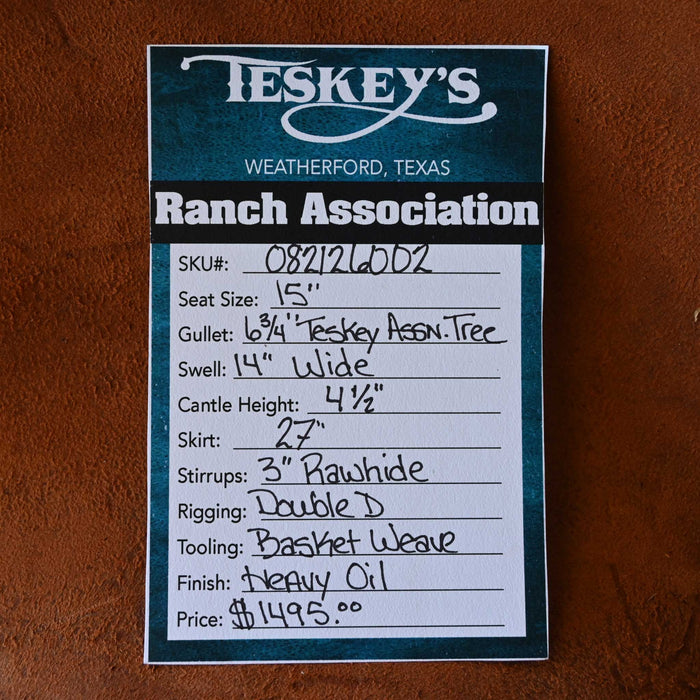 TESKEY'S
WEATHERFORD, TEXAS
Ranch Association
SKU#: 082126002
Seat Size: 15"
Gullet: 6 3/4" Teskey Assn. Tree
Swell: 14" Wide
Cantle Height: 4 1/2"
Skirt: 27"
Stirrups: 3" Rawhide
Rigging: Double D
Tooling: Basket Weave
Finish: Heavy Oil
Price: $1495.00